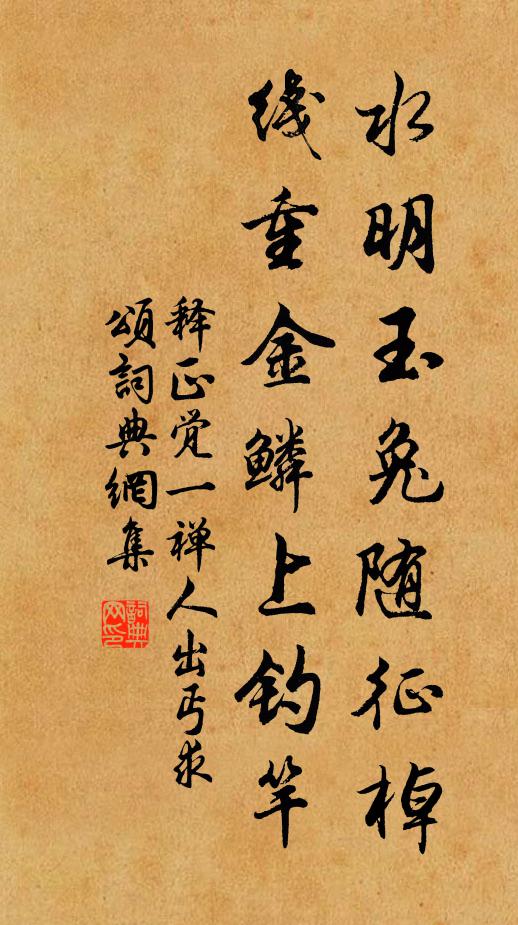 水明玉兔随征棹
线重金鳞上钓竿
释正觉一禅人出丐求
颂詞典網集
詞典网印